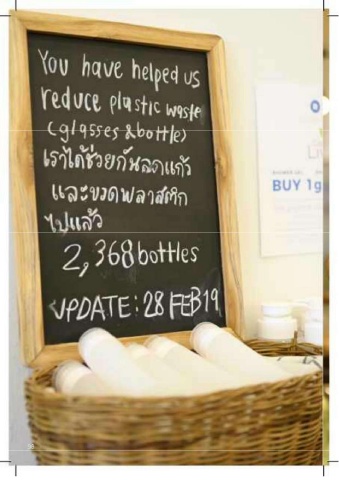 You have helped us
reduce plastic waste
(glasses &bottle)
เราได้ช่วยกันลดแก้ว
และขวดพลาสติก
ไปแล้ว
2,368 bottles
UPDATE: 28 FEB 19
BUY 1g